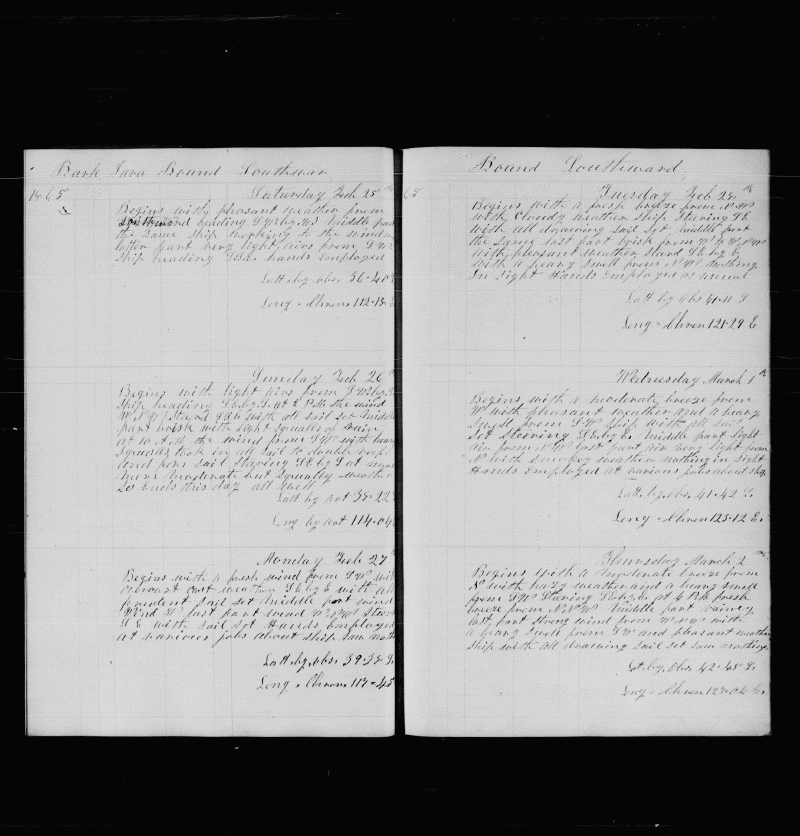 Bark Java Bound Southwar
1865
Saturday Feb 25th
Begins with pleasant weather from
Southward heading S W by W Middle part
the Same Ship working to the wind
latter part very light airs from S W
Ship heading hands Employed
Latt by obs 36-40 S
Long - Chron 112-13 E
Sunday Feb 26
Begins with light airs from S W by S
Ship heading S E by S at 2 P M the wind
with all sail set Middle
part brisk with light squalls of rain
at 10 A M the wind from S W with heavy
squalls took in all sail to double reef
and fore sail Stearing S E by E at
more moderate but squally weather
So Ends this day all well
Latt by act 38-22
Long by act 114-04
Monday Feb 27th
Begins with a fresh wind from S W with
overcast weather S E by E with all
prudent sail set Middle part wind
W last part wind
S E with sail set Hands Employed
at various jobs about ship saw noth
Latt. by obs. 39-38 S.
Long. Chron 117-45
Bound Southward
65
Tuesday Feb 28th
Begins with a fresh breeze from
with Cloudy weather Ship Stearing S E
with all drawing sail set Middle part
the Same last part brisk from
with pleasant weather Steard S E by E
with a heavy swell from nothing
In Sight Hands Employed as usual
Latt by obs 41-11 S
Long - Chron 121-29 E
Wednesday March 1th
Begins with a moderate breeze from
W with pleasant weather and a heavy
Swell from S W Ship with all sail
Set Steering S E by E Middle part light
air from last part air very light from
N with Smokey weather nothing in Sight
Hands Employed at various jobs about ship
Latt. by obs. 41-42 S.
Long - Chron 123-12 E.
Thursday March 2
Begins with a moderate breeze from
N with hazy weather and a heavy swell
from S W Stearing S E by E at 4 P M fresh
breeze from N N W Middle part rainey
last part Strong wind from with
a heavy swell from S W and pleasant weather
Ship with all drawing sail set saw nothing
Lat. by. Obs. 42-45 S.
Long - Chron 127-04 E.